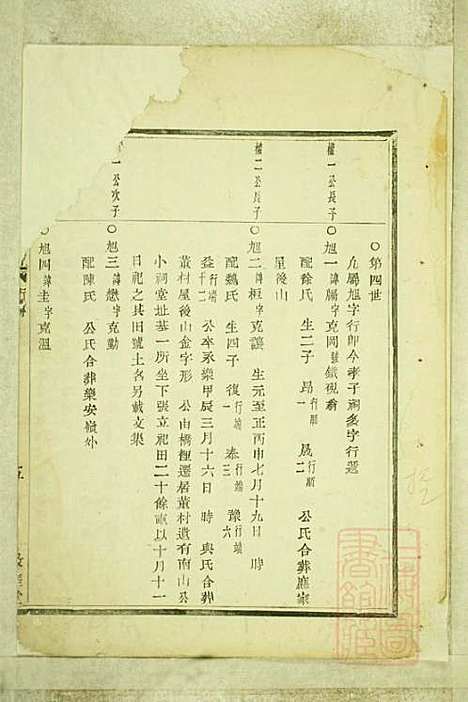 ○第四世
九屬旭字行即今孝子祠參字行選
權一公長子
○旭一諱鵬字克岡號鐵硯齋
配徐氏 生二子 昂行順一 晟行順二 公氏合葬應家
屋後山
權二公長子
○旭二諱桓字克讓 生元至正丙申七月十九日 時
配魏氏 生四子 復行端一 泰行端三 豫行端六
益行端十二 公卒永樂甲辰三月十六日 時 與氏合葬
董村屋後山金字形 公由橋徑遷居董村遺有南山公
小祠堂址基一所坐下張立祀田二十餘畝以十月十一
日祀之其田號土名另載文集
一公次子
○旭三諱懋字克勤
配陳氏 公氏合葬藥安嶺外
○旭四諱圭字克溫
五